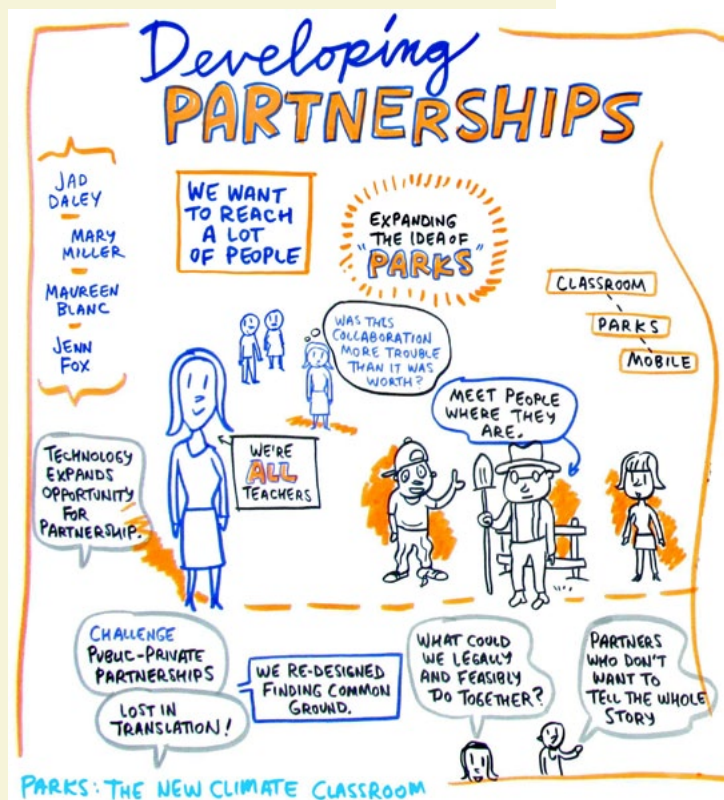 Developing
PARTNERSHIPS
JAD
DALEY
MARY
MILLER
MAUREEN
BLANC
JENN
FOX
WE WANT
TO REACH
A LOT
OF PEOPLE
EXPANDING
THE IDEA OF
"PARKS"
CLASSROOM
PARKS
MOBILE
WAS THIS
COLLABORATION
MORE TROUBLE
THAN IT WAS
WORTH?
MEET PEOPLE
WHERE THEY
ARE.
TECHNOLOGY
EXPANDS
OPPORTUNITY
FOR
PARTNERSHIP.
WE'RE
ALL
TEACHERS
CHALLENGE
PUBLIC-PRIVATE
PARTNERSHIPS
LOST IN
TRANSLATION!
WE RE-DESIGNED
FINDING COMMON
GROUND.
WHAT COULD
WE LEGALLY
AND FEASIBLY
DO TOGETHER?
PARTNERS
WHO DON'T
WANT TO
TELL THE WHOLE
STORY
PARKS: THE NEW CLIMATE CLASSROOM